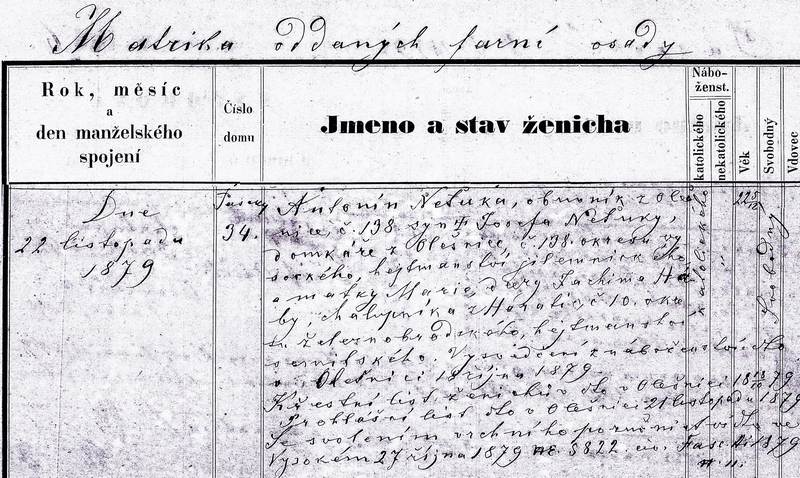 Matrika oddaných farní osady
Rok, měsíc
a
den manželského
spojení
Číslo
domu
Jmeno a stav ženicha
Nábo-
ženst.
katolického
nekatolického
Věk
Svobodný
Vdovec
Dne
22 listopadu
1879
34.
Antonín Nětuka, obuvník z Oleš
nice, č. 138 syn Josefa Nětuky,
domkáře z Olešnice, č. 138. okresu vy
sockého, hejtmanství jilemnického
a matky Marie, dcery Jachima
by chalupníka z č 10. okre
su železnobrodského, hejtmanství
semilského. Vysvědčení z náboženství dto
v Olešnici 18 října 1879.
Křestní list ženichův dto v Olešnici 18 79
Prohlášní list dto v Olešnici 21 listopadu 1879
Se svolením vrchního poručnictví dto ve
Vysokém 27 října 1879 5822. civ. Fasc 1879
katolického
Svobodný